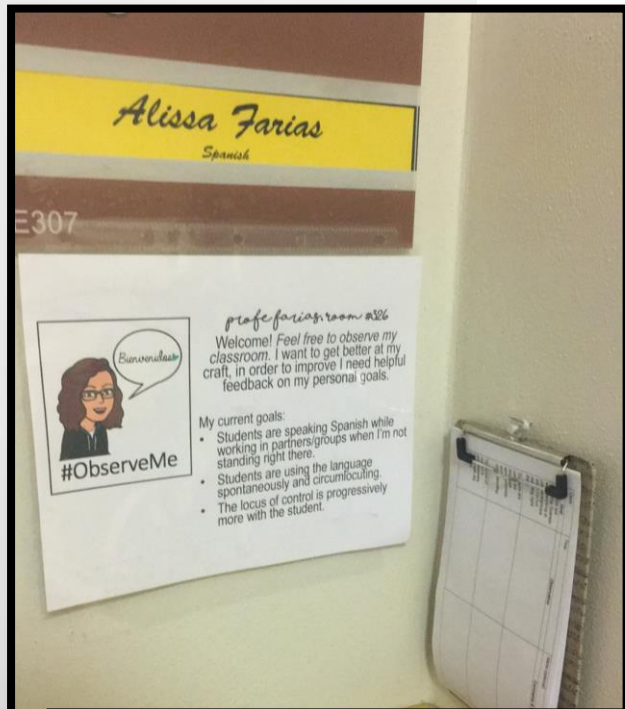 Alissa Farias
Spanish
E307
profe farias, room #326
Welcome! Feel free to observe my
classroom. I want to get better at my
craft, in order to improve I need helpful
feedback on my personal goals.
Bienvenidos
#ObserveMe
My current goals:
• Students are speaking Spanish while
working in partners/groups when I'm not
standing right there.
• Students are using the language
spontaneously and circumlocuting.
• The locus of control is progressively
more with the student.